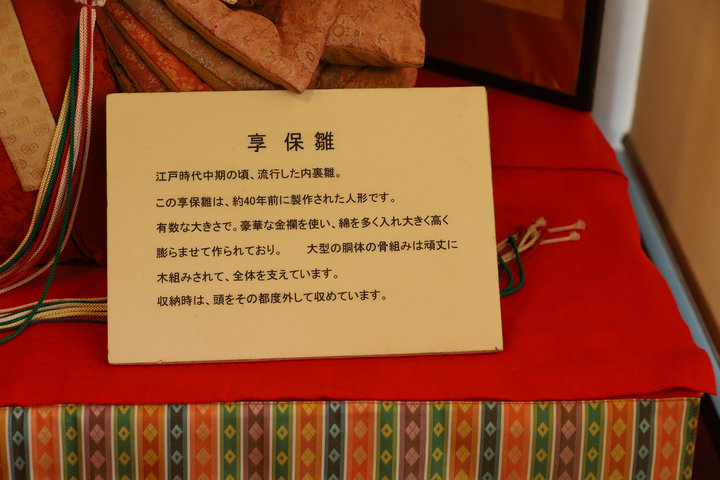 享保雛
江戸時代中期の頃、流行した内裏雛。
この享保雛は、約40年前に製作された人形です。
有数な大きさで。豪華な金襴を使い、綿を多く入れ大きく高く
膨らませて作られており。　大型の胴体の骨組みは頑丈に
木組みされて、全体を支えています。
収納時は、頭をその都度外して収めています。